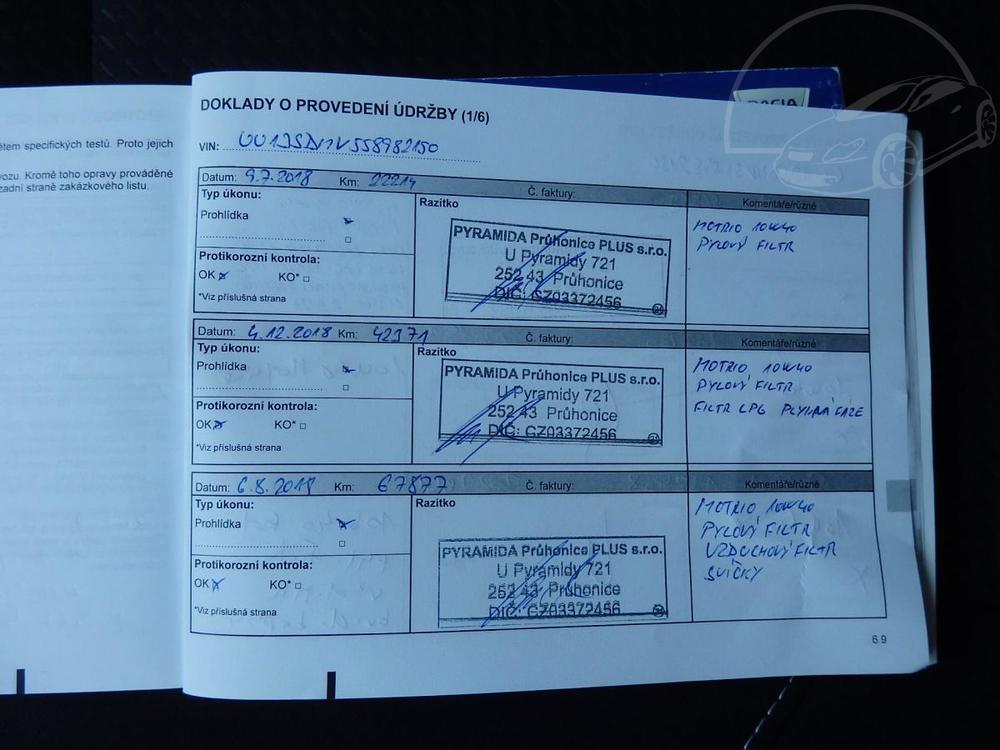 ětem specifických testů. Proto jejich
vozu. Kromě toho opravy prováděné
zadní straně zakázkového listu.
DACIA
DOKLADY O PROVEDENÍ ÚDRŽBY (1/6)
VIN: UU1JSDN1V558982150
Datum: 9.7.2018 Km: 22214 Č. faktury: Komentáře/různé
Typ úkonu: Razítko
Prohlídka
Protikorozní kontrola:
OK KO*
*Viz příslušná strana
PYRAMIDA Průhonice PLUS s.r.o.
U Pyramidy 721
252 43 Průhonice
DIČ: CZ03372456
MOTRIO 10W40
PYLOVÝ FILTR
Datum: 4.12.2018 Km: 42371 Č. faktury: Komentáře/různé
Typ úkonu: Razítko
Prohlídka
Protikorozní kontrola:
OK KO*
*Viz příslušná strana
PYRAMIDA Průhonice PLUS s.r.o.
U Pyramidy 721
252 43 Průhonice
DIČ: CZ03372456
MOTRIO 10W40
PYLOVÝ FILTR
FILTR LPG PLYNNÁ FÁZE
Datum: 6.8.2019 Km: 67877 Č. faktury: Komentáře/různé
Typ úkonu: Razítko
Prohlídka
Protikorozní kontrola:
OK KO*
*Viz příslušná strana
PYRAMIDA Průhonice PLUS s.r.o.
U Pyramidy 721
252 43 Průhonice
DIČ: CZ03372456
MOTRIO 10W40
PYLOVÝ FILTR
VZDUCHOVÝ FILTR
SVÍČKY
6.9